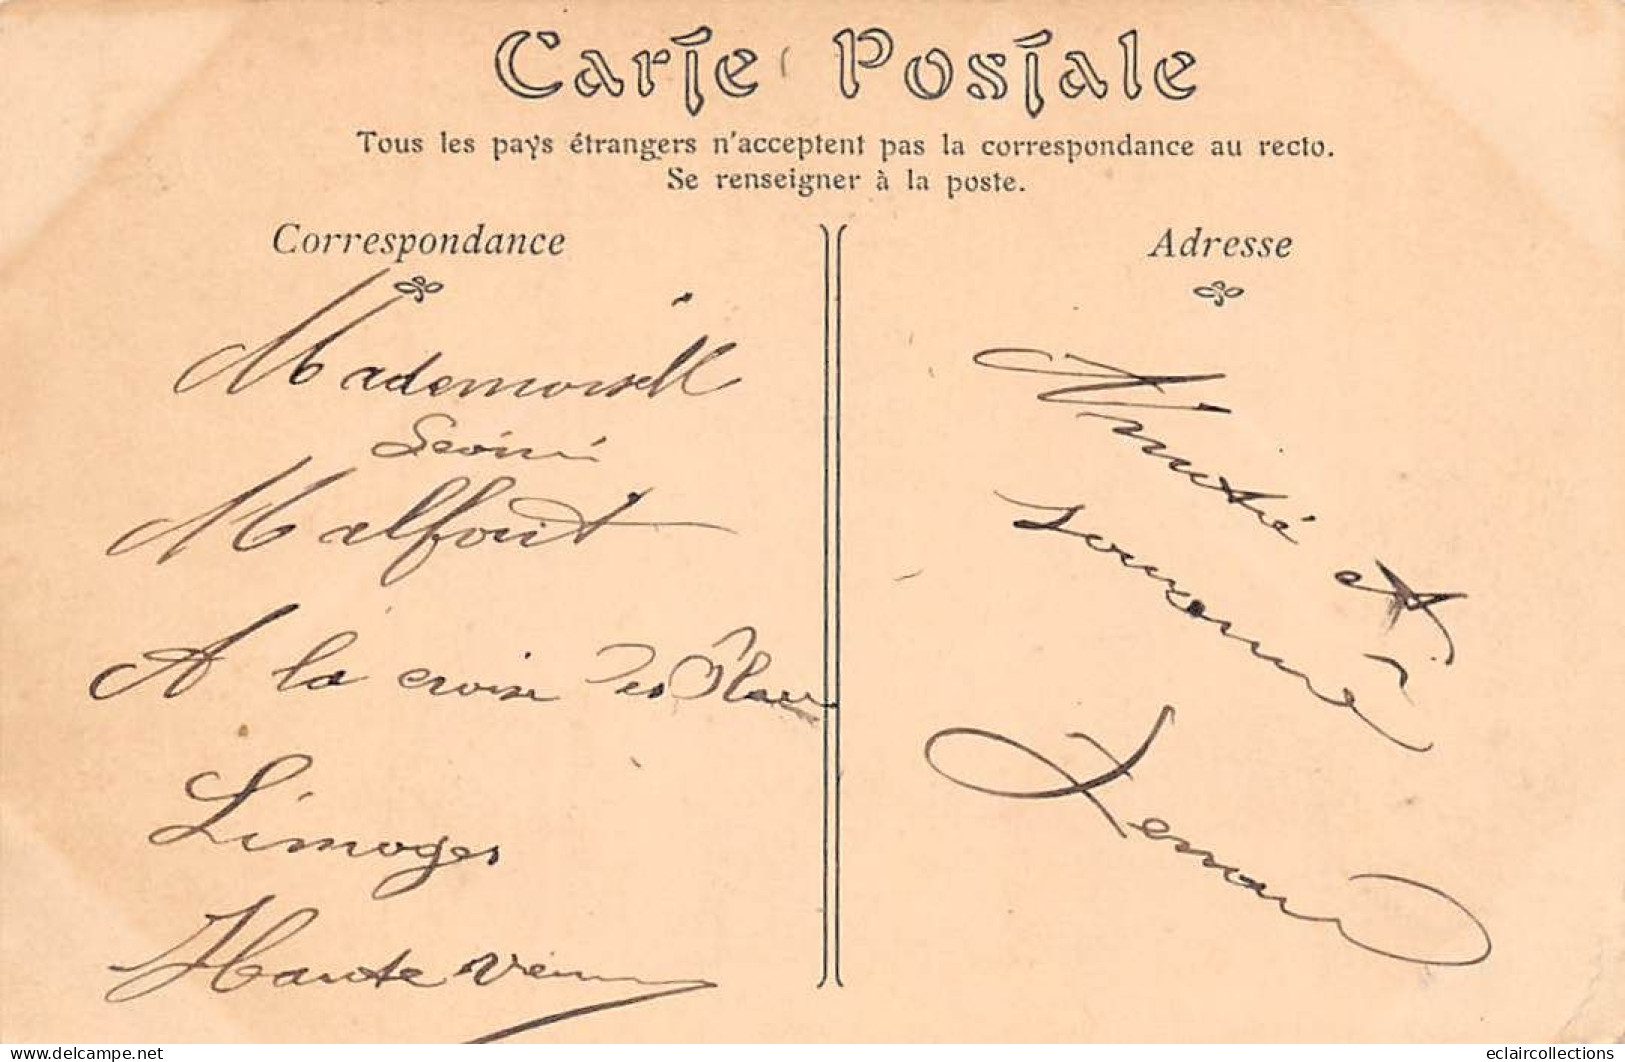 Carte Postale
Tous les pays étrangers n'acceptent pas la correspondance au recto.
Se renseigner à la poste.
Correspondance
Mademoisell
Malfont
A la croise des
Limoges
Haute vienne
Adresse
Amitié et
souvenir
Renou
eclaircollections